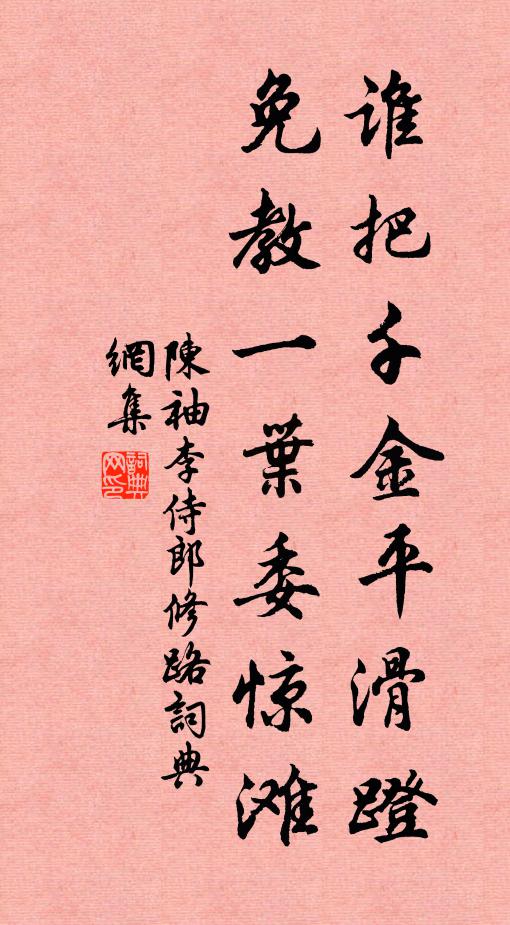 谁把千金平滑蹬
免教一葉委惊滩
陳袖李侍郎修路詞典
網集
詞典网印